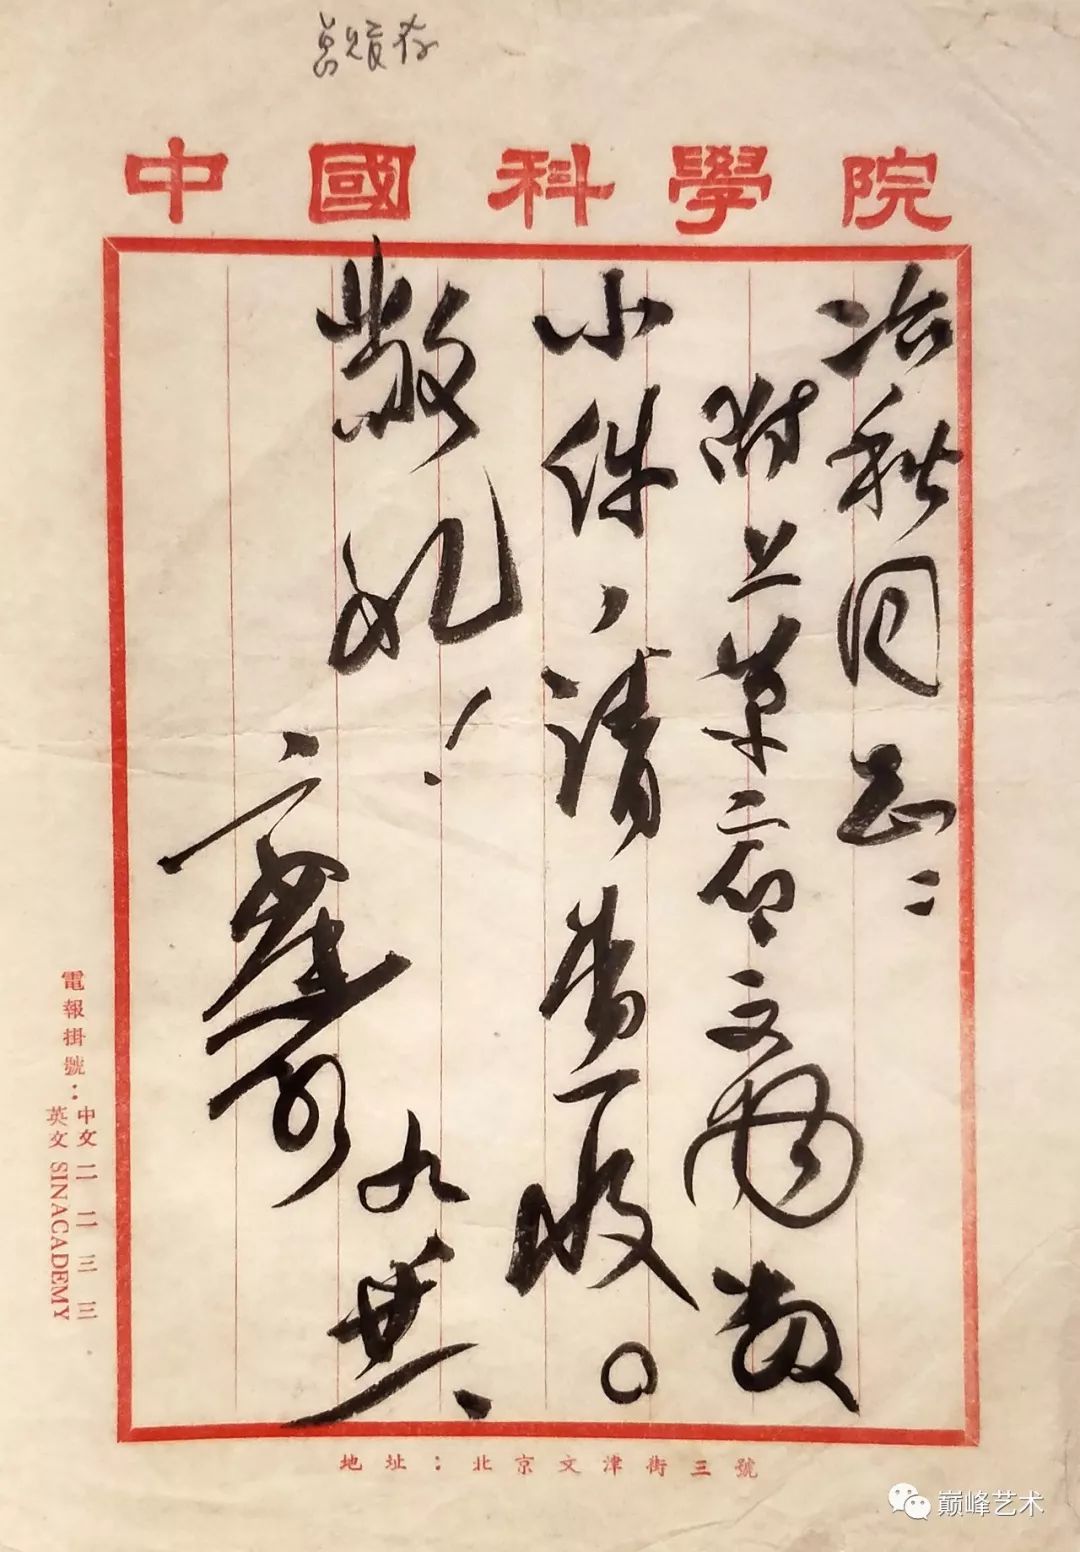 中國科學院
冶秋同志：
附上革命文物数
小件，请查收。
敬礼！
電報掛號：
中文 二二三三
英文 SINACADEMY
地址：北京文津街三號
巅峰艺术